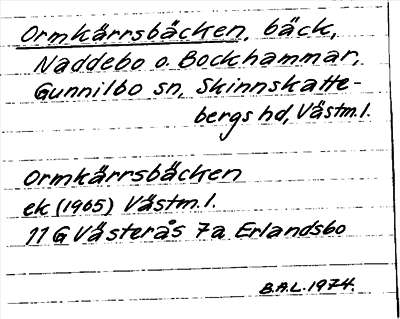 Ormkärrsbäcken, bäck,
Naddebo o. Bockhammar,
Gunnilbo sn, Skinnskatte-
bergs hd, Västm.l.
Ormkärrsbäcken
ek (1965) Västm.l.
11 G Västerås 7a Erlandsbo
B.A.L. 1974.